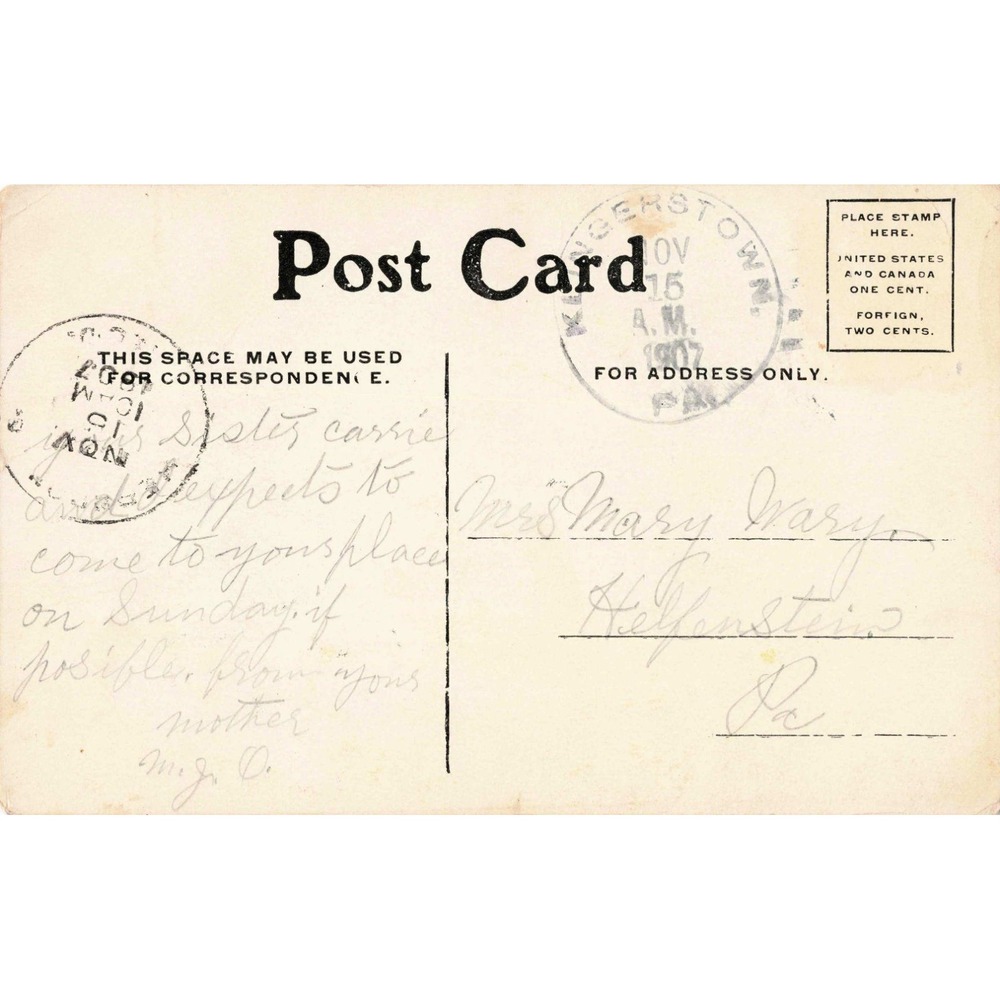 Post Card
THIS SPACE MAY BE USED
FOR CORRESPONDENCE.
FOR ADDRESS ONLY.
PLACE STAMP
HERE.
UNITED STATES
AND CANADA
ONE CENT.
FOREIGN,
TWO CENTS.
KLINGERSTOWN,
NOV
15
A.M.
1907
PA.
NOV
10 AM
your Sister carrie
and expects to
come to your place
on Sunday. if
posible. from your
mother
M. J. O.
Mrs Mary Wary.
Helfenstein
Pa